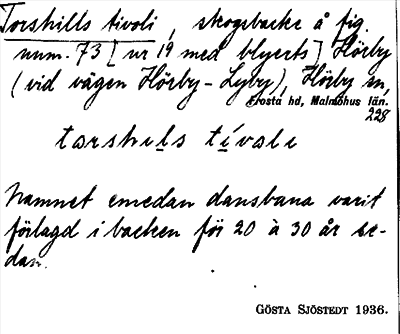 Torshills tivoli, skogsbacke å fig.
num. 73 [nr 19 med blyerts] Hörby
(vid vägen Hörby - Lyby), Hörby sn,
Frosta hd, Malmöhus län.
228
tarshils tívali
Namnet emedan dansbana varit
förlagd i backen för 20 à 30 år se-
dan.
GÖSTA SJÖSTEDT 1936.